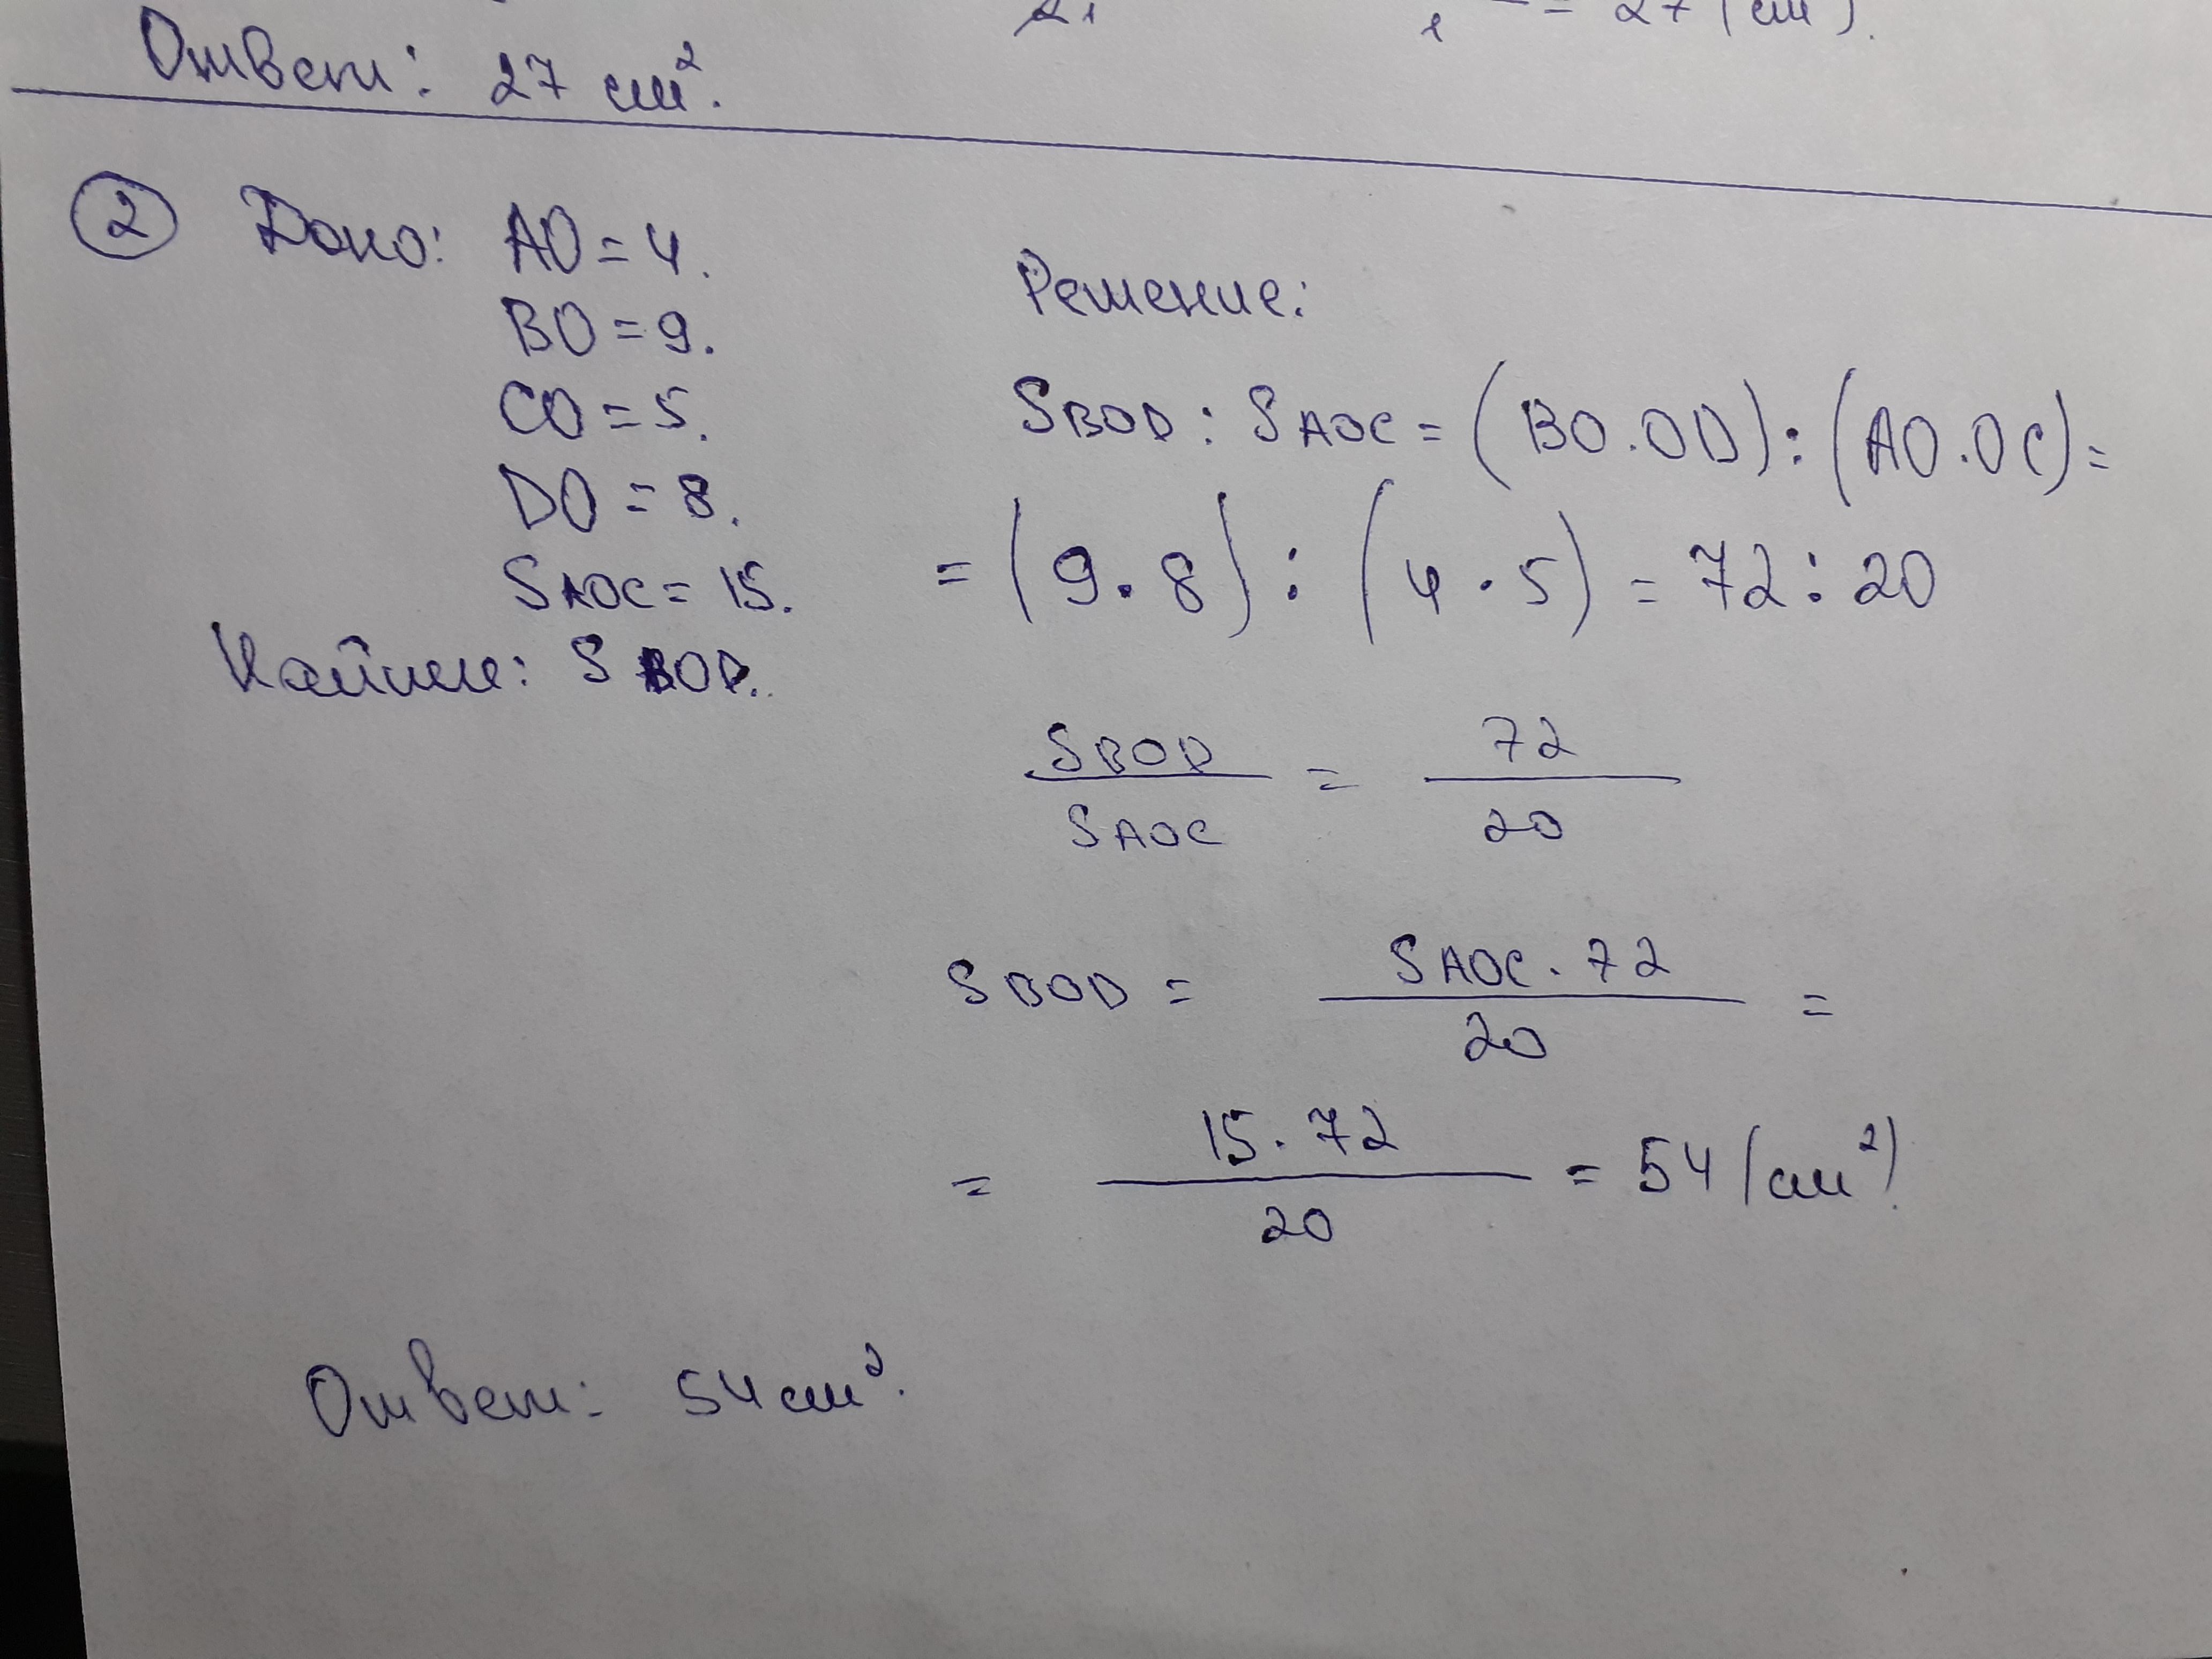 = 27 (см²).
Ответ: 27 см².
② Дано: AO = 4.
BO = 9.
CO = 5.
DO = 8.
SAOC = 15.
Найти: SBOD.
Решение:
SBOD : SAOC = (BO · OD) : (AO · OC) =
= (9 · 8) : (4 · 5) = 72 : 20
SBOD / SAOC = 72 / 20
SBOD = SAOC · 72 / 20 =
= 15 · 72 / 20 = 54 (см²)
Ответ: 54 см².